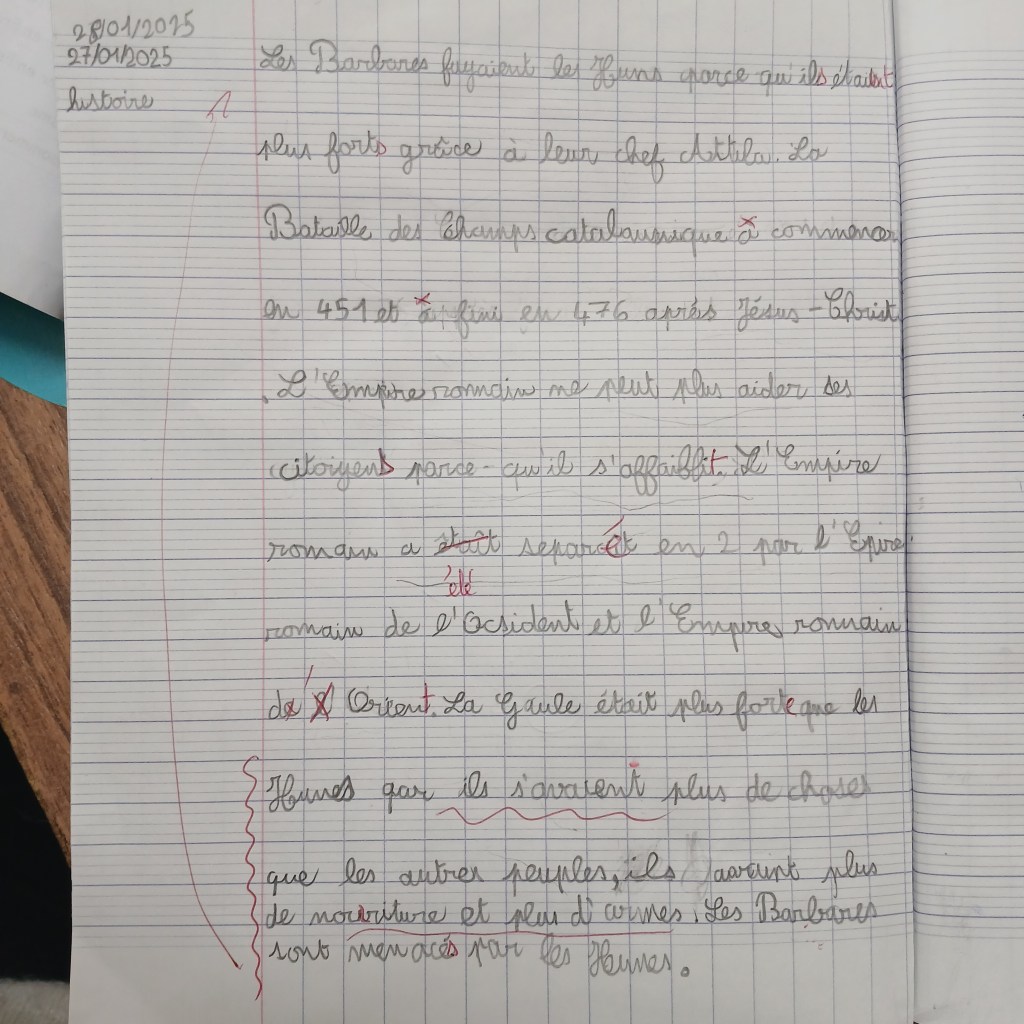 28/01/2025
27/01/2025
histoire
Les Barbares fuyaient les Huns parce qu'ils étaient
plus forts grâce à leur chef Attila. La
Bataille des Champs catalaunique à commencer
en 451 et à fini en 476 après Jésus-Christ
. L'Empire romain ne peut plus aider ses
citoyens parce-qu'il s'affaiblit. L'Empire
romain a était separét en 2 par l'Epire
été
romain de l'Ocsident et l'Empire romain
de l' Orient. La Gaule était plus forte que les
Hunes qar ils s'avaient plus de choses
que les autres peuples, ils avaint plus
de nourriture et plus d'armes. Les Barbares
sont menacés par les Hunes.